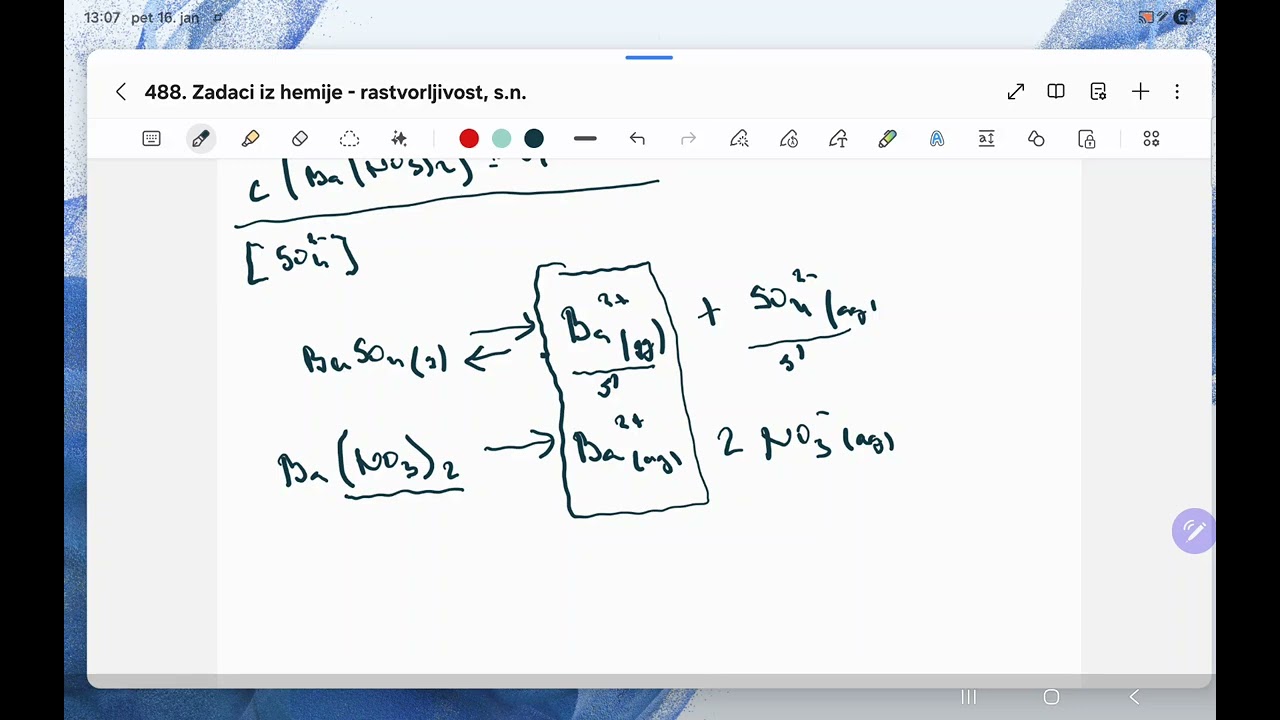 13:07 pet 16. jan
488. Zadaci iz hemije - rastvorljivost, s.n.
c (Ba(NO3)2) =
[SO4²⁻]
BaSO4(s) ⇄ Ba²⁺(aq) + SO4²⁻(aq)
s' s'
Ba(NO3)2 → Ba²⁺(aq) 2 NO3⁻(aq)